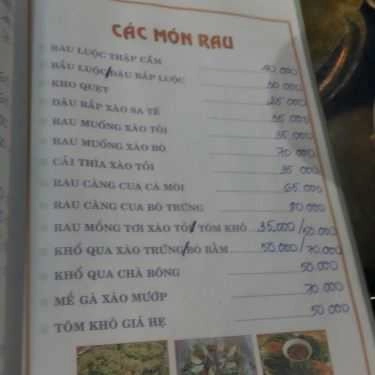 CÁC MÓN RAU
RAU LUỘC THẬP CẨM 40 000
BẦU LUỘC/ĐẬU BẮP LUỘC 30 000
KHO QUẸT 25 000
ĐẬU BẮP XÀO SA TẾ 35 000
RAU MUỐNG XÀO TỎI 35 000
RAU MUỐNG XÀO BÒ 70 000
CẢI THÌA XÀO TỎI 35 000
RAU CÀNG CUA CÁ MÒI 65 000
RAU CÀNG CUA BÒ TRỨNG 80 000
RAU MỒNG TƠI XÀO TỎI/ TÔM KHÔ 35.000/50.000
KHỔ QUA XÀO TRỨNG/BÒ BẰM 50.000/70.000
KHỔ QUA CHÀ BÔNG 50.000
MỀ GÀ XÀO MƯỚP 70 000
TÔM KHÔ GIÁ HẸ 50 000